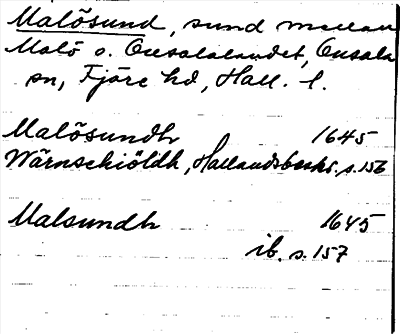 Malösund, sund mellan
Malö o. Onsalalandet, Onsala
sn, Fjäre hd, Hall. l.
Malösundh 1645
Wärnschiöldh, Hallandsbeskr. s. 156
Malsundh 1645
ib. s. 157